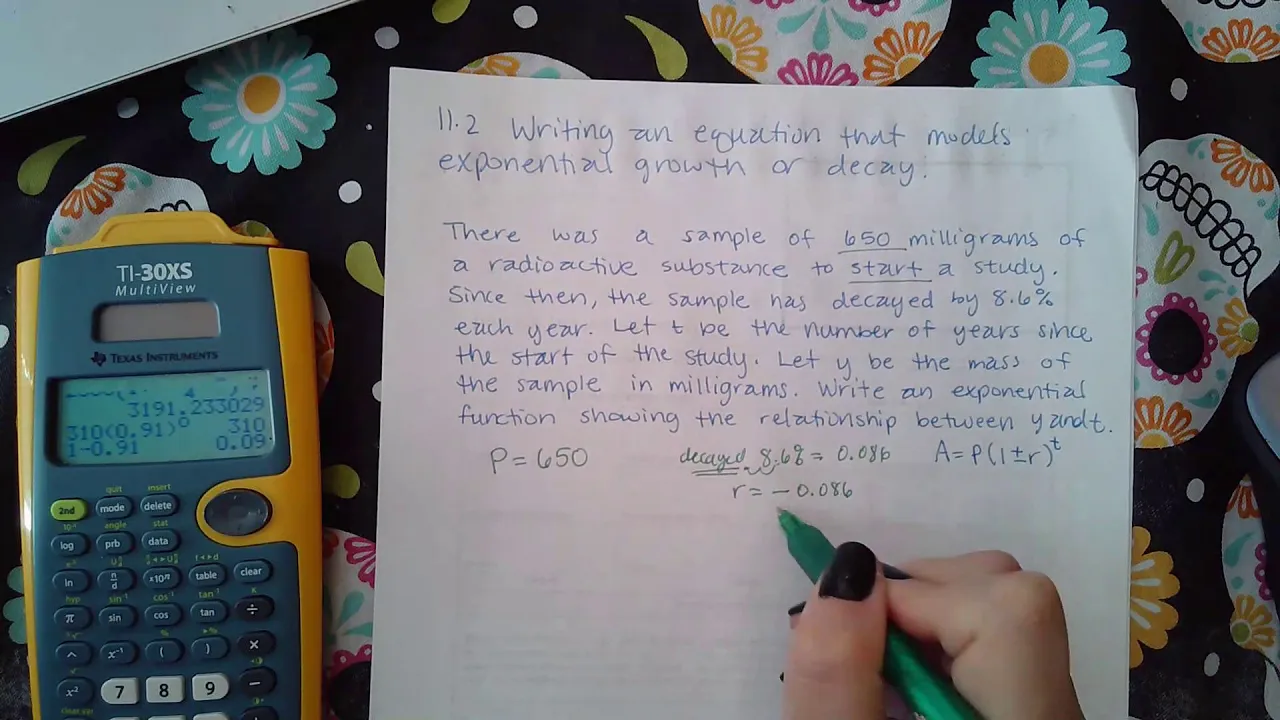 11.2 Writing an equation that models
exponential growth or decay.
There was a sample of 650 milligrams of
a radioactive substance to start a study.
Since then, the sample has decayed by 8.6%
each year. Let t be the number of years since
the start of the study. Let y be the mass of
the sample in milligrams. Write an exponential
function showing the relationship between y and t.
P = 650
decayed 8.6% = 0.086
A = P(1 ± r)^t
r = - 0.086
TI-30XS
MultiView
TEXAS INSTRUMENTS
3191.233029
310(0.91)^0 310
1-0.91 0.09
quit insert
2nd mode delete
10^x angle stat
log prb data
e^x
ln n/d x10^n table clear
hyp sin^-1 cos^-1 tan^-1 K
π sin cos tan ÷
^ x^-1 ( ) ×
x² 7 8 9 −